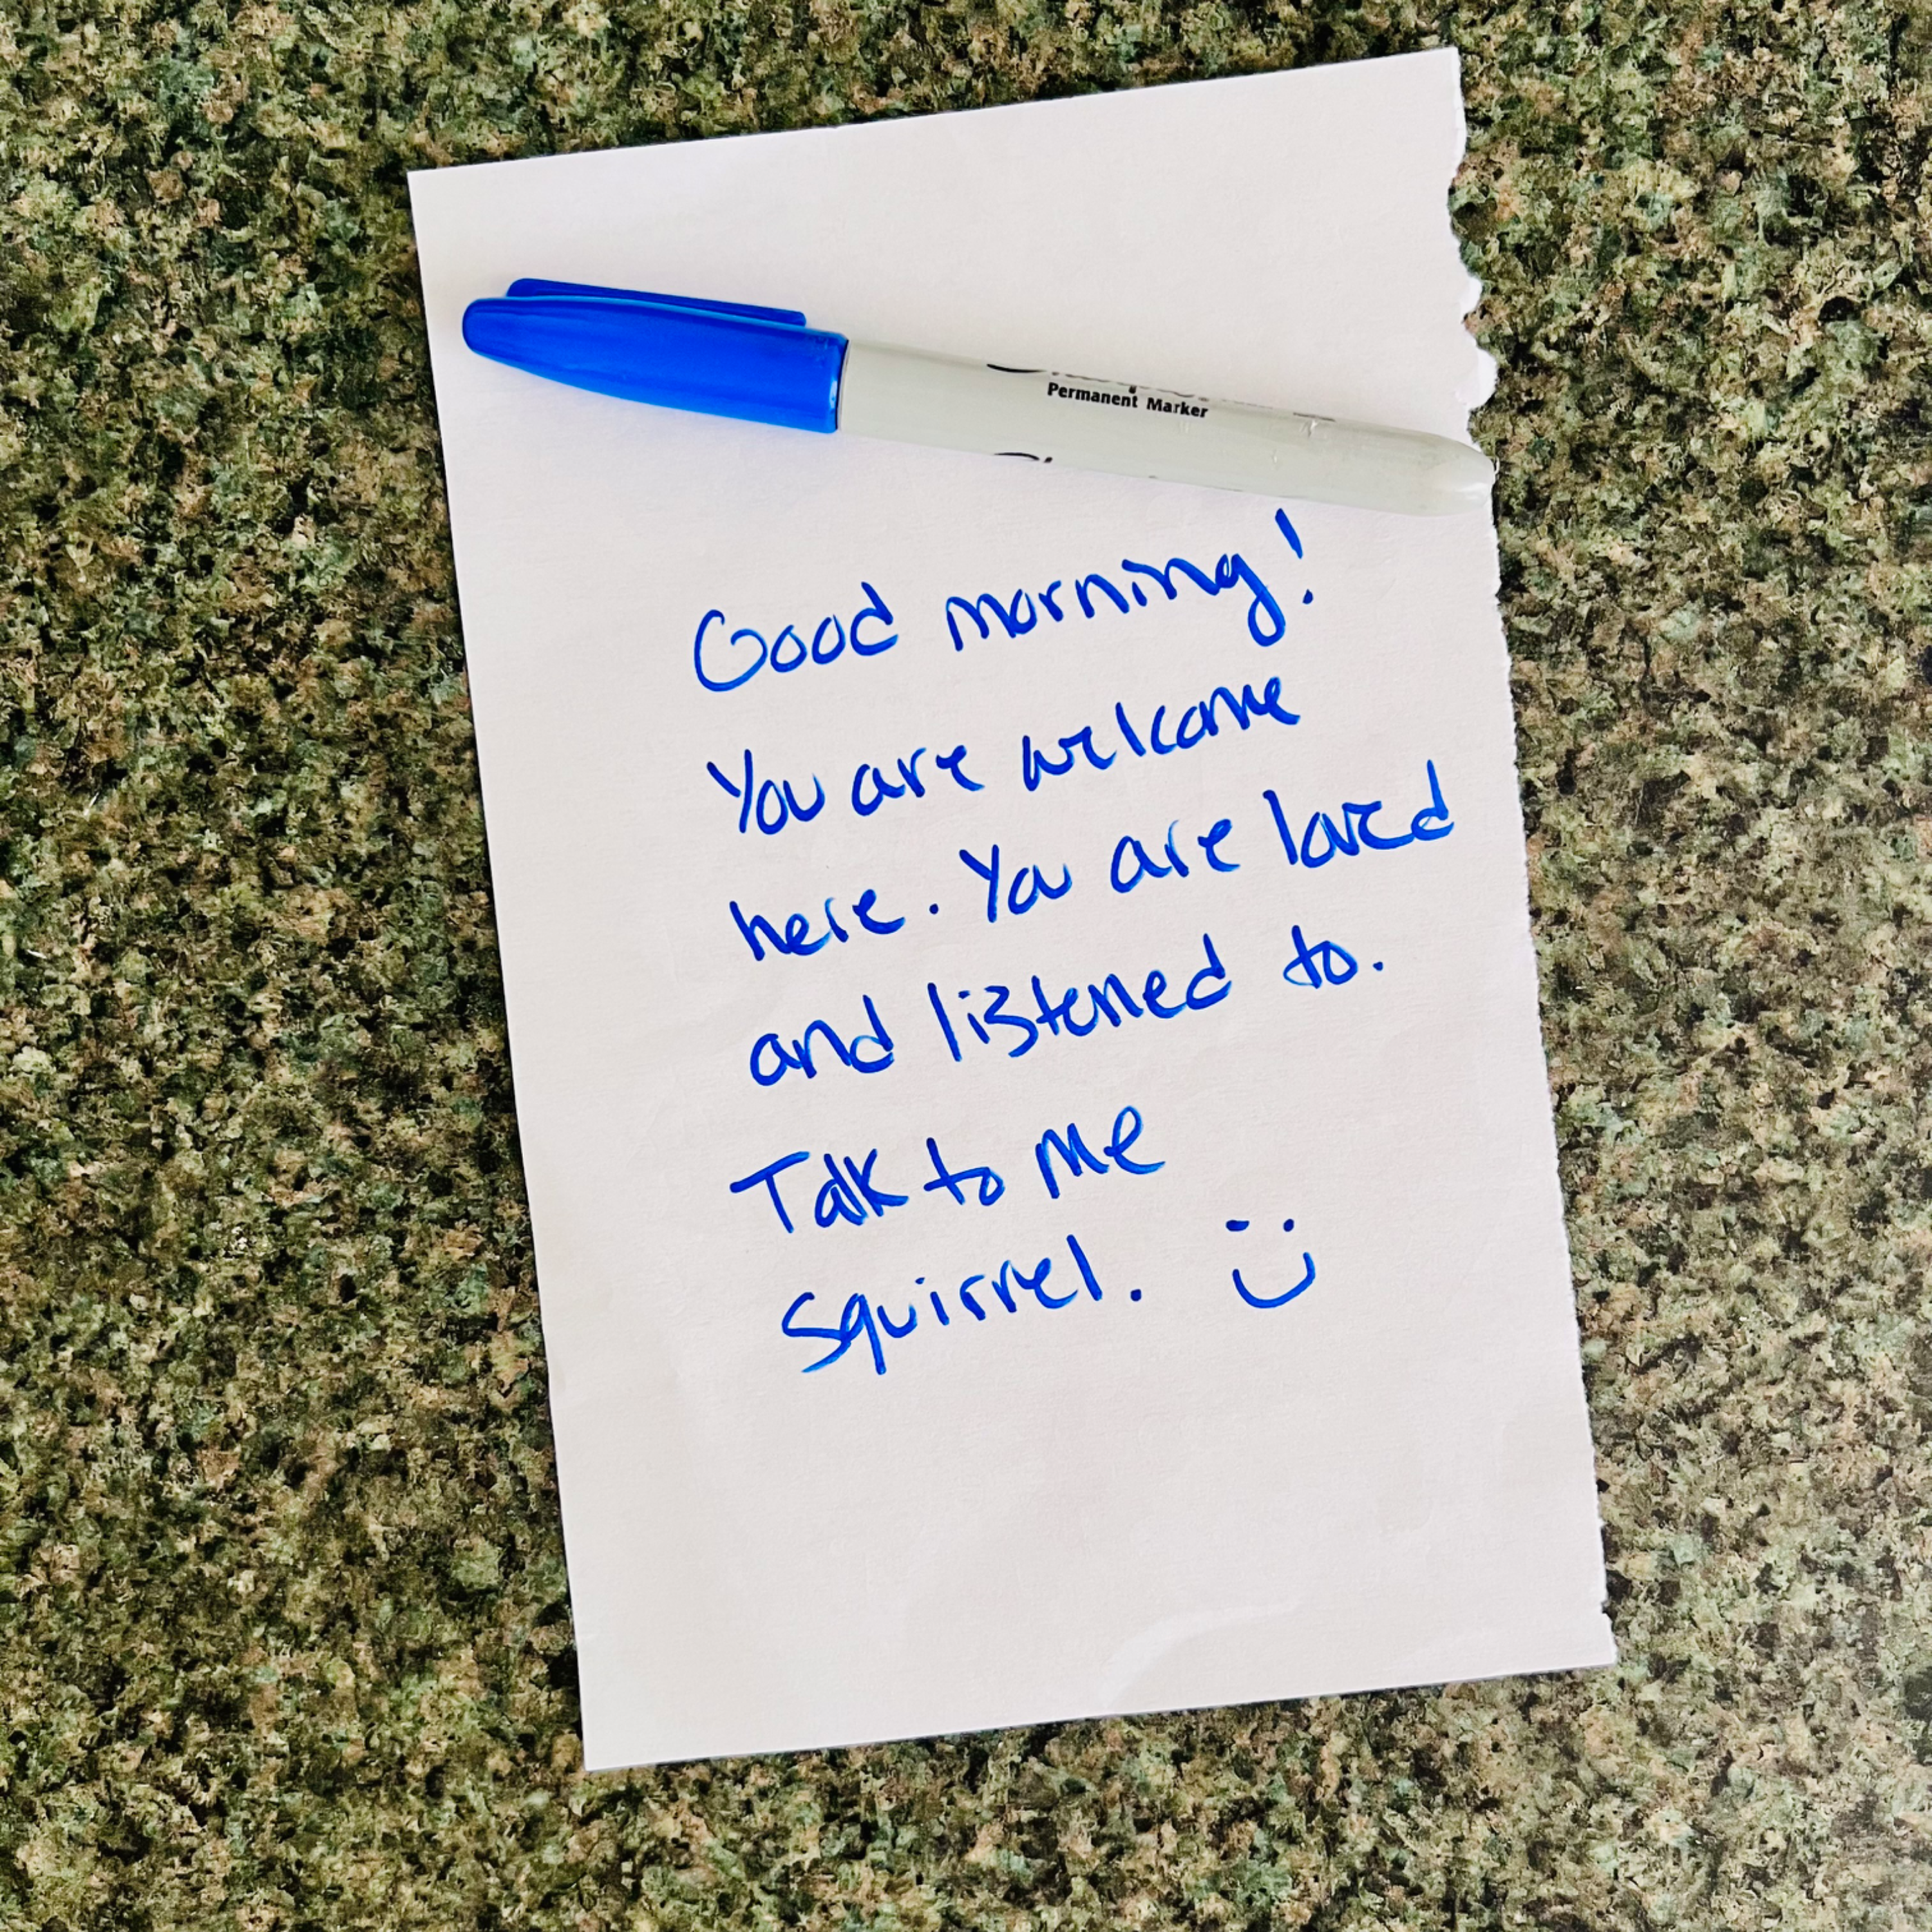 Permanent Marker
Good morning!
You are welcome
here. You are loved
and listened to.
Talk to me
squirrel.